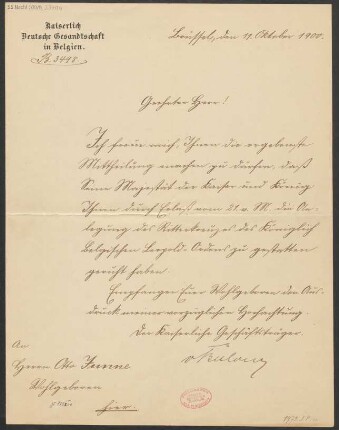 Kaiserlich
Deutsche Gesandtschaft
in Belgien.
B. 3498.
Brüssel, den 4. Oktober 1900.
Geehrter Herr!
Ich freue mich, Ihnen die ergebenste
Mittheilung machen zu dürfen, daß
Seine Majestät der Kaiser und König
Ihnen durch Erlaß vom 21. v. M. die An-
legung des Ritterkreuzes des Königlich
Belgischen Leopold-Ordens zu gestatten
geruht haben.
Empfangen Euer Wohlgeboren den Aus-
druck meiner vorzüglichen Hochachtung.
Der Kaiserliche Geschäftsträger.
An
Herrn Otto Junne
Wohlgeboren
hier.